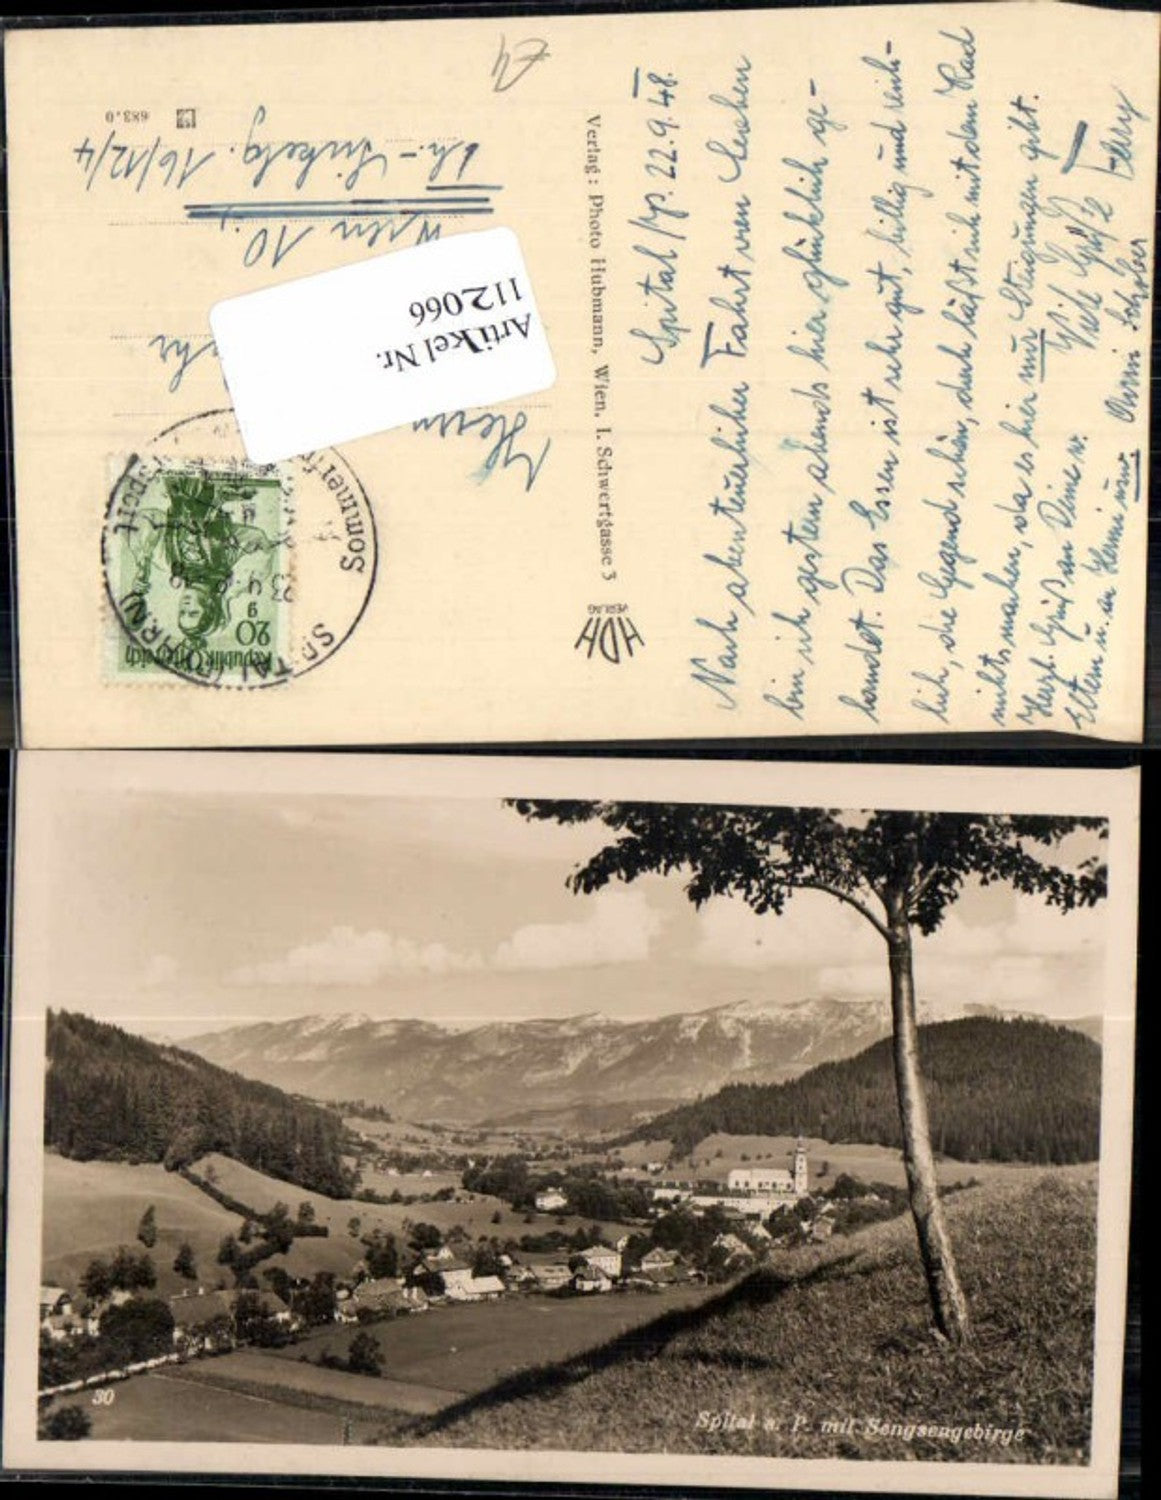 Spital/Pp. 22.9.48.
Nach abenteuerlicher Fahrt von Leoben
bin ich gestern abends hier glücklich ge-
landet. Das Essen ist sehr gut, billig und reich-
lich, die Gegend schön, doch läßt sich mit dem Rad
nichts machen, da es hier nur Steigungen gibt.
Herzl. Grüße an Deine w. Viele Grüße
Eltern u. an Hermi usw.
Verlag: Photo Hubmann, Wien, I. Schwertgasse 3
HDH
VERLAG
Republik Österreich
20
SPITAL (PYHRN)
Sommerfrische
Wintersport
Herrn
Artikel Nr.
112066
Wien 10.,
16/12/4
683.0
30
Spital a. P. mit Sengsengebirge